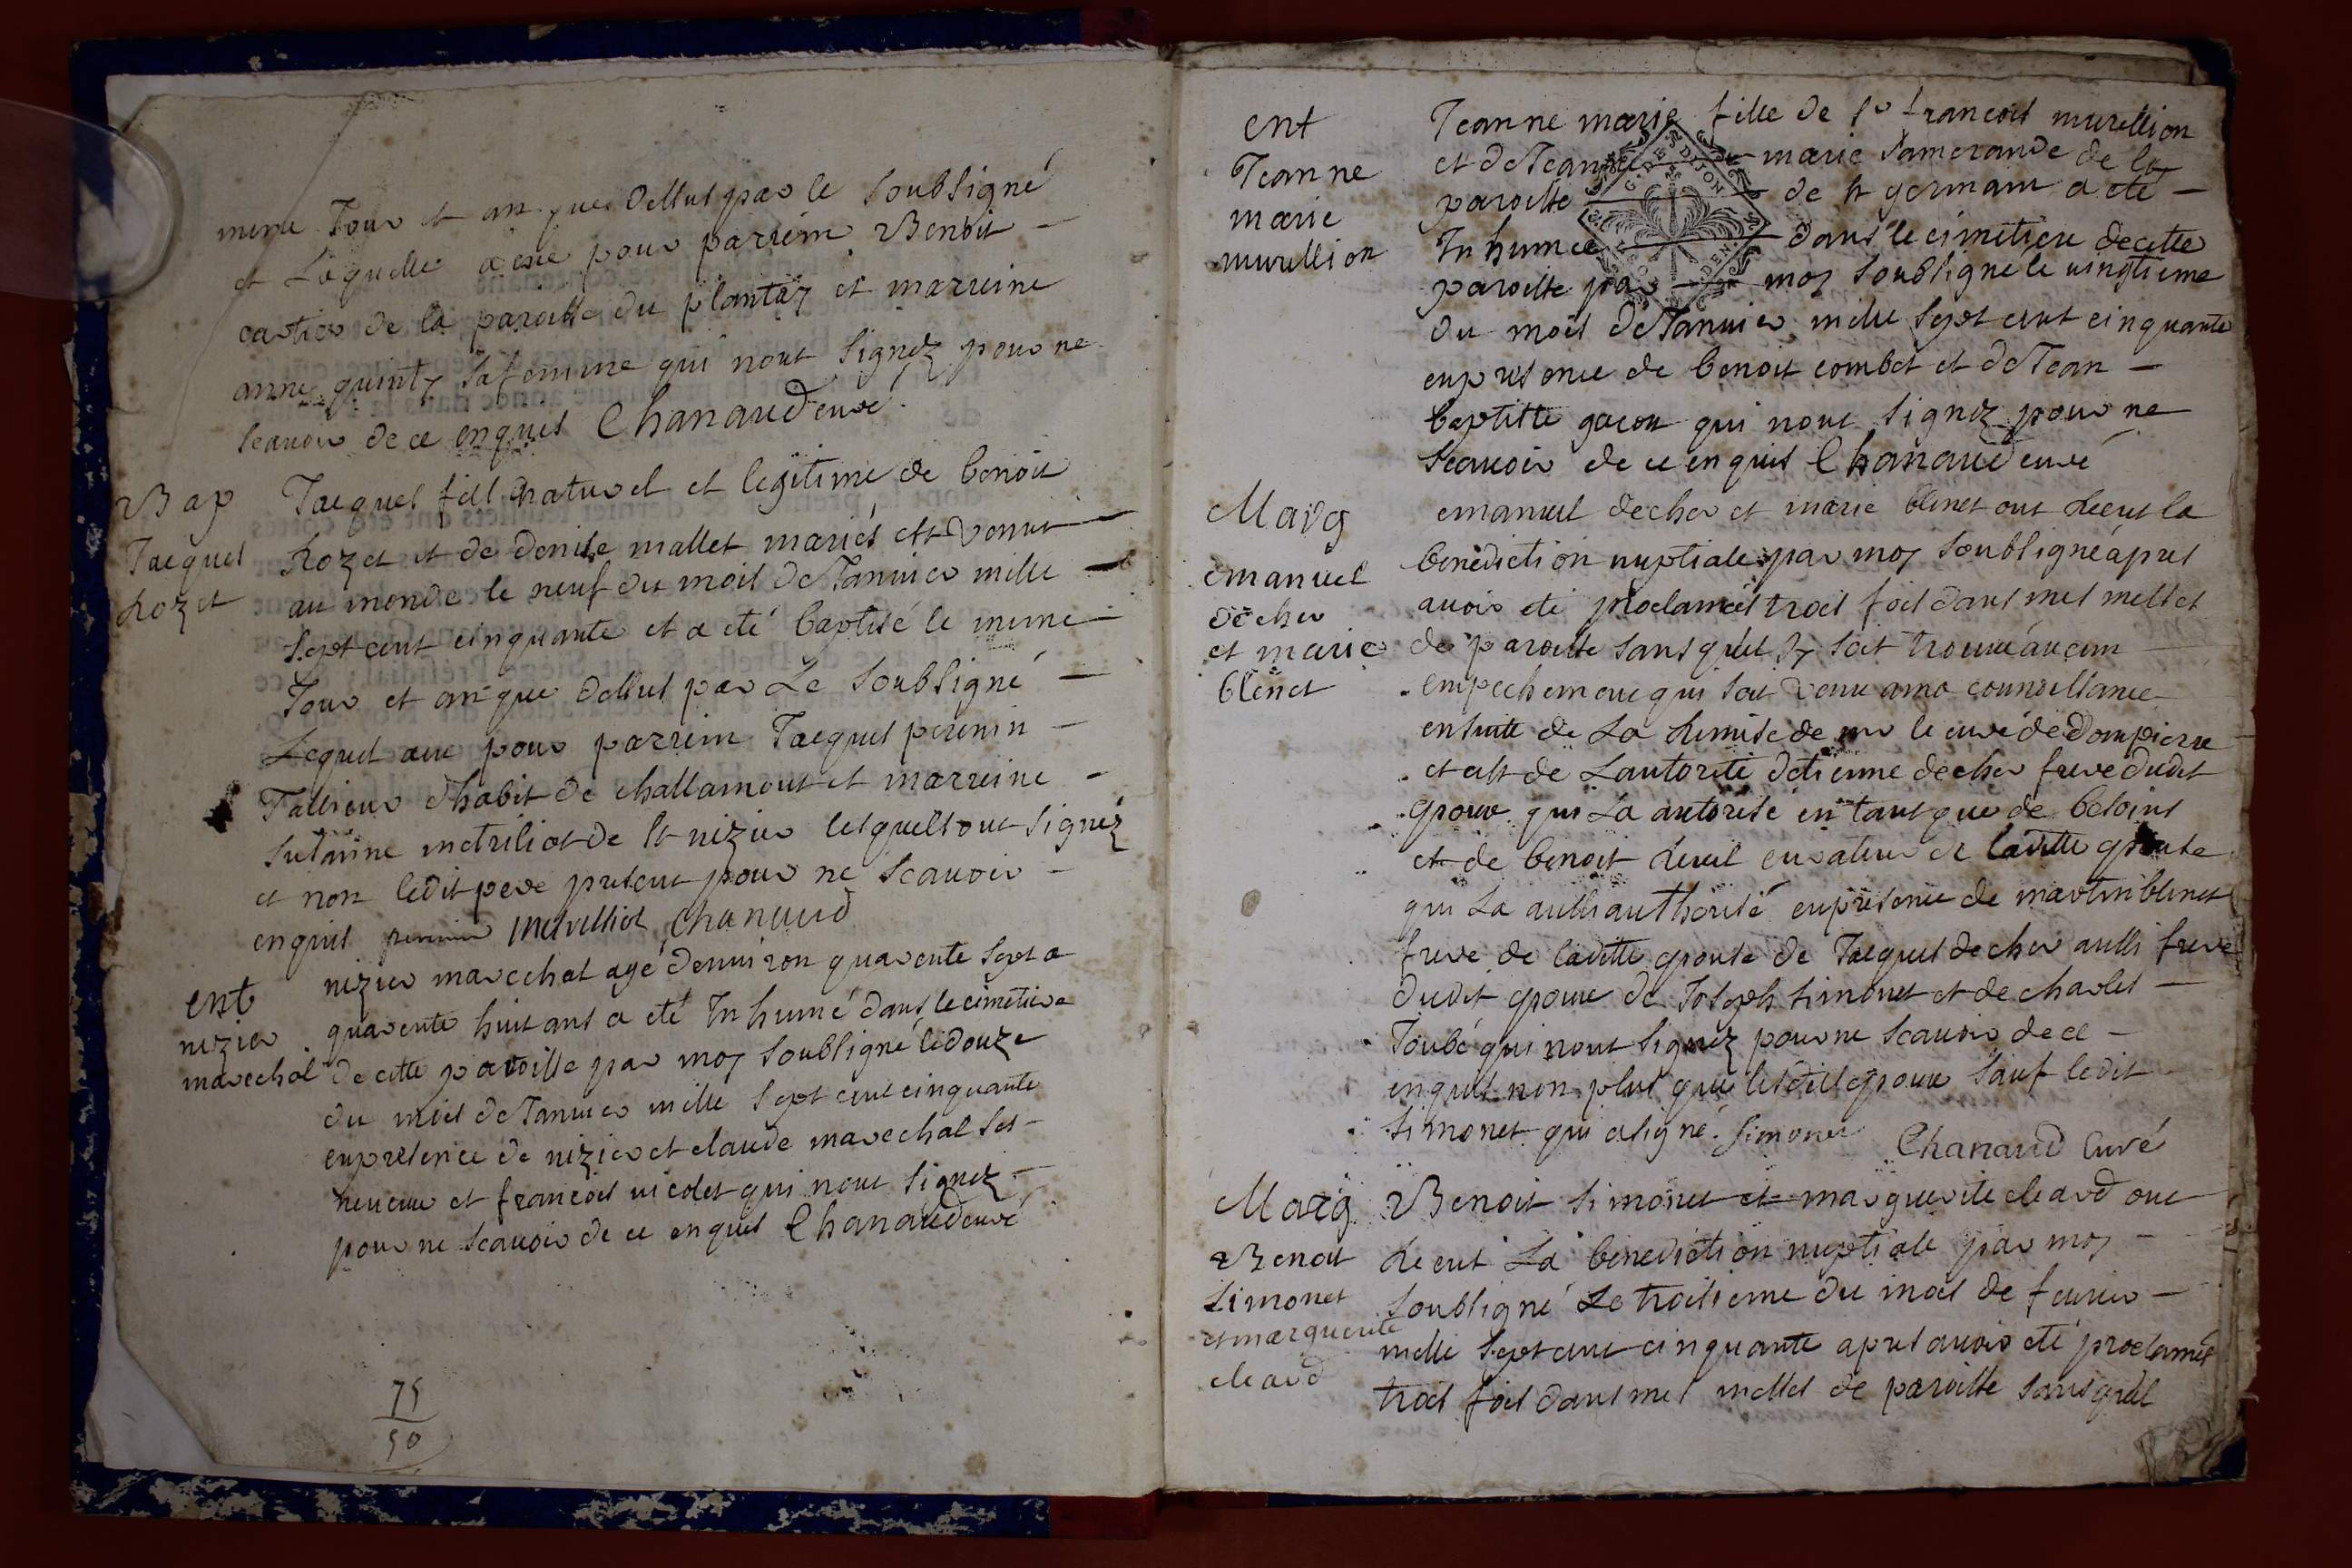 meme Jour et an que dessus par le soubsigné
et Laquelle a eue pour parrein Benoit
cartier de la paroisse du plantay et marreine
anne quinty sa femme qui nont signez pour ne
scauoir de ce enquis Chanaud curé
Bap
Jacques
Rozet
Jacques fils naturel et legitime de benoit
Rozet et de denise mallet mariés est venut
au monde le neuf du mois de Januier mille
sept cent cinquante et a eté baptisé le meme
Jour et an que dessus par Le soubsigné
Lequel a eu pour parrein Jacques perenin
Tallieur dhabit de challamont et marreine
susanne metrilliot de st nizier lesquels ont signéz
et non ledit pere present pour ne scauoir
enquis perenin metrilliot chanaud
ent
nizier
marechal
nizier marechal agé denuiron quarente sept a
quarente huit ans a eté Inhumé dans le cimetiere
de cette paroisse par moy soubsigné le douze
du mois de Januier mille sept cent cinquante
en presence de nizier et claude marechal ses
neueux et francois nicolet qui nont signez
pour ne scauoir de ce enquis Chanaud curé
75
50
ent
Jeanne
marie
murellion
Jeanne marie fille de sr francois murellion
et de Jeanne marie Samerande de la
paroisse de st germain a eté
Inhumee dans le cimetiere de cette
paroisse par moy soubsigné le uingtieme
du mois de Januier mille sept cent cinquante
en presence de benoit combet et de Jean
baptiste gacon qui nont signez pour ne
scauoir de ce enquis Chanaud curé
G. DE DIJON
Marg
emanuel
decher
et marie
blenet
emanuel decher et marie blenet ont Receut la
benediction nuptiale par moy soubsigné apres
auoir eté proclamés trois fois dans mes messes
de paroisse sans quil sy soit trouué aucun
empechement qui soit venu a ma connoissance
ensuite de La Remise de mr le curé de Dompierre
et ast de Lautorité detienne decher frere dudit
epoux qui La autorisé en tant que de besoins
et de benoit Reuel curateur de laditte epouse
qui La aussi authorisé en presence de martin blenet
frere de laditte epouse de Jacques decher aussi frere
dudit epoux de Joseph simonet et de charles
Joubé qui nont signez pour ne scauoir de ce
enquis non plus que lesdits epoux sauf ledit
simonet qui a signé. Simonet Chanaud Curé
Marg
Benoit
simonet
et marguerite
cleard
Benoit simonet et marguerite cleard ont
Receut La benediction nuptiale par moy
soubsigné Le troisieme du mois de feurier
mille sept cent cinquante apres auoir eté proclamés
trois fois dans mes messes de paroisse sans quil